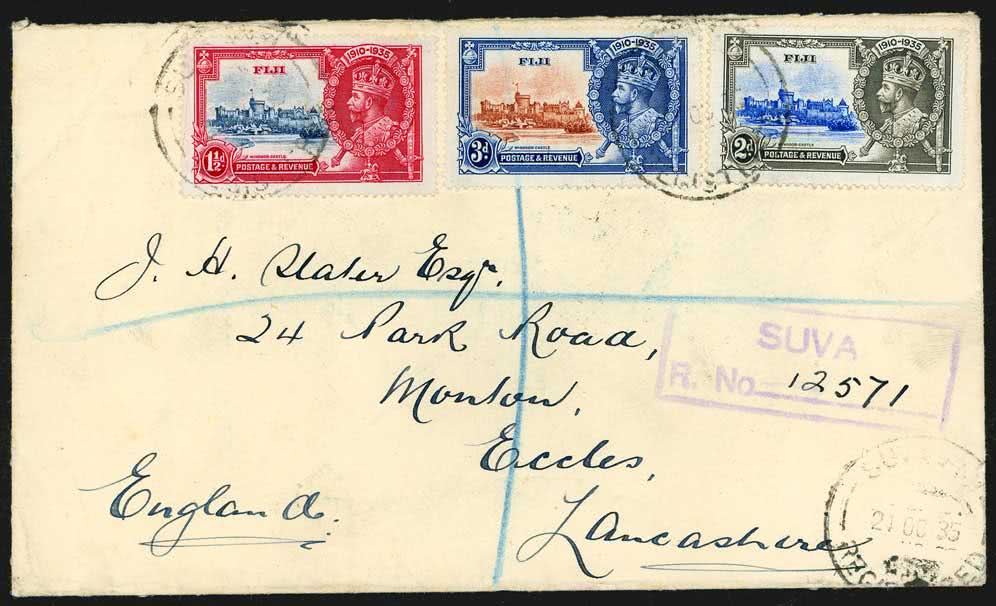 1910-1935
FIJI
WINDSOR CASTLE
1½d
POSTAGE & REVENUE
1910-1935
FIJI
WINDSOR CASTLE
3d
POSTAGE & REVENUE
1910-1935
FIJI
WINDSOR CASTLE
2d
POSTAGE & REVENUE
J. H. Slater Esqr.
24 Park Road,
Monton,
Eccles,
Lancashire
England.
SUVA
R. No 12571
21 OC 35
REGISTERED